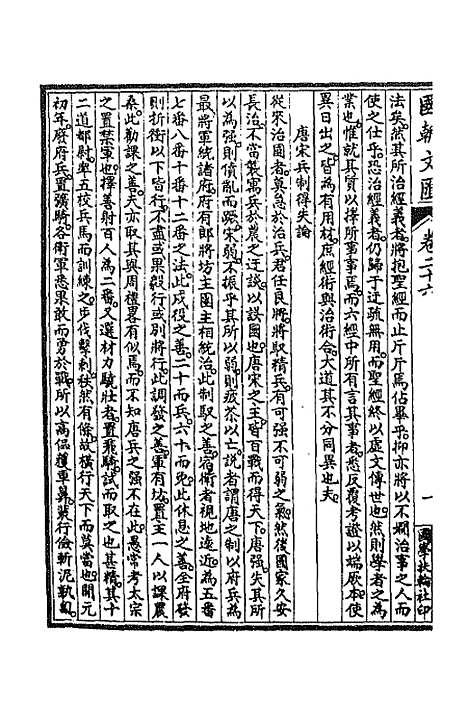 國朝文匯
卷二十六
一
國學扶輪社印
法矣然其所治經義者將抱聖經而止斤斤焉佔畢乎抑亦將以不嫻治事之人而
使之仕乎恐治經義者仍歸于迂疏無用而聖經終以虛文傳世也然則學者之為
業也惟就其質以擇所事事焉而六經中所有言其事者悉反覆考證以端厥本使
異日出之皆為有用材庶經術與治術合大道其不分同異也夫
唐宋兵制得失論
從來治國者莫急於治兵君任良將將取精兵有可強不可弱之氣然後國家久安
長治不當襲寓兵於農之迂談以誤國也唐宋之主皆百戰而得天下唐強失其所
以為強則僨亂而踣宋弱不振乎其所以弱則疲苶以亡說者謂唐之制以府兵為
最將軍統諸府府有郎將坊主團主相統治此制取之善宿衛者視地遠近為五番
七番八番十番十二番之法此戍役之善二十而兵六十而免此休息之善全府發
則折衝以下皆行不盡或果毅行或別將行此調發之善軍有坊置主一人以課農
桑此勸課之善夫亦取其與周禮畧有似焉而不知唐兵之強不在此愚常考太宗
之置禁軍也擇善射百人為二番又選材力驍壯者置飛騎試而取之也甚精其十
二道都尉率五校兵馬而訓練之步伐擊刺秩然有條故橫行天下而莫當也開元
初年廢府兵置彍騎各衛軍悉果敢而勇於戰所以高偘獲車鼻裴行儉斬泥孰匐